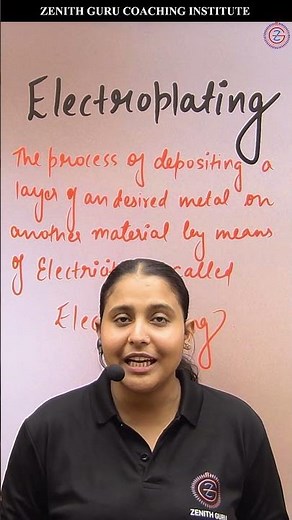 ZENITH GURU COACHING INSTITUTE
Electroplating
The process of depositing a
layer of an desired metal on
another material by means
of called
ZENITH GURU